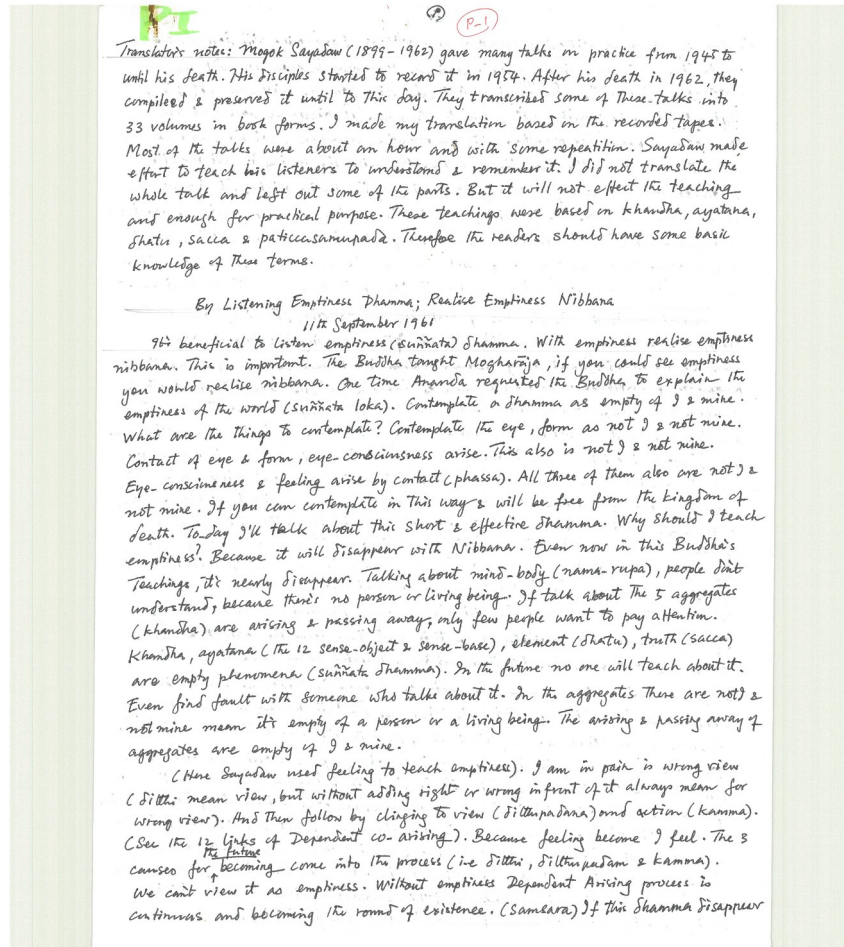 PI
P-1
Translator's notes: Mogok Sayadaw (1899-1962) gave many talks on practice from 1945 to
until his death. His disciples started to record it in 1954. After his death in 1962, they
compileed & preserved it until to this day. They transcribed some of these talks into
33 volumes in book forms. I made my translation based on the recorded tapes.
Most of the talks were about an hour and with some repeatition. Sayadaw made
effort to teach his listeners to understand & remember it. I did not translate the
whole talk and left out some of the parts. But it will not effect the teaching
and enough for practical purpose. These teachings were based on khandha, ayatana,
dhatu, sacca & paticcasamupada. Therefore the readers should have some basic
knowledge of these terms.
By Listening Emptiness Dhamma; Realise Emptiness Nibbana
11th September 1961
It's beneficial to listen emptiness (suññata) dhamma. With emptiness realise emptiness
nibbana. This is important. The Buddha taught Mogharāja, if you could see emptiness
you would realise nibbana. One time Ananda requested the Buddha to explain the
emptiness of the world (suññata loka). Contemplate a dhamma as empty of I & mine.
What are the things to contemplate? Contemplate the eye, form as not I & not mine.
Contact of eye & form, eye-consciousness arise. This also is not I & not mine.
Eye-consciousness & feeling arise by contact (phassa). All three of them also are not I &
not mine. If you can contemplate in this way & will be free from the kingdom of
death. To-day I'll talk about this short & effective dhamma. Why should I teach
emptiness? Because it will disappear with Nibbana. Even now in this Buddha's
Teachings, it's nearly disappear. Talking about mind-body (nama-rupa), people don't
understand, because there's no person or living being. If talk about the 5 aggregates
(khandha) are arising & passing away, only few people want to pay attention.
Khandha, ayatana (the 12 sense-object & sense-base), element (dhatu), truth (sacca)
are empty phenomena (suññata dhamma). In the future no one will teach about it.
Even find fault with someone who talks about it. In the aggregates there are not I &
not mine mean it's empty of a person or a living being. The arising & passing away of
aggregates are empty of I & mine.
(Here Sayadaw used feeling to teach emptiness). I am in pain is wrong view
(ditthi mean view, but without adding right or wrong infront of it always mean for
wrong view). And then follow by clinging to view (ditthupadana) and action (kamma).
(See the 12 links of Dependent co-arising). Because feeling become I feel. The 3
causes for the future becoming come into the process (i.e ditthi, ditthupadam & kamma).
We can't view it as emptiness. Without emptiness Dependent Arising process is
continues and becoming the round of existence. (Samsara) If this dhamma disappear